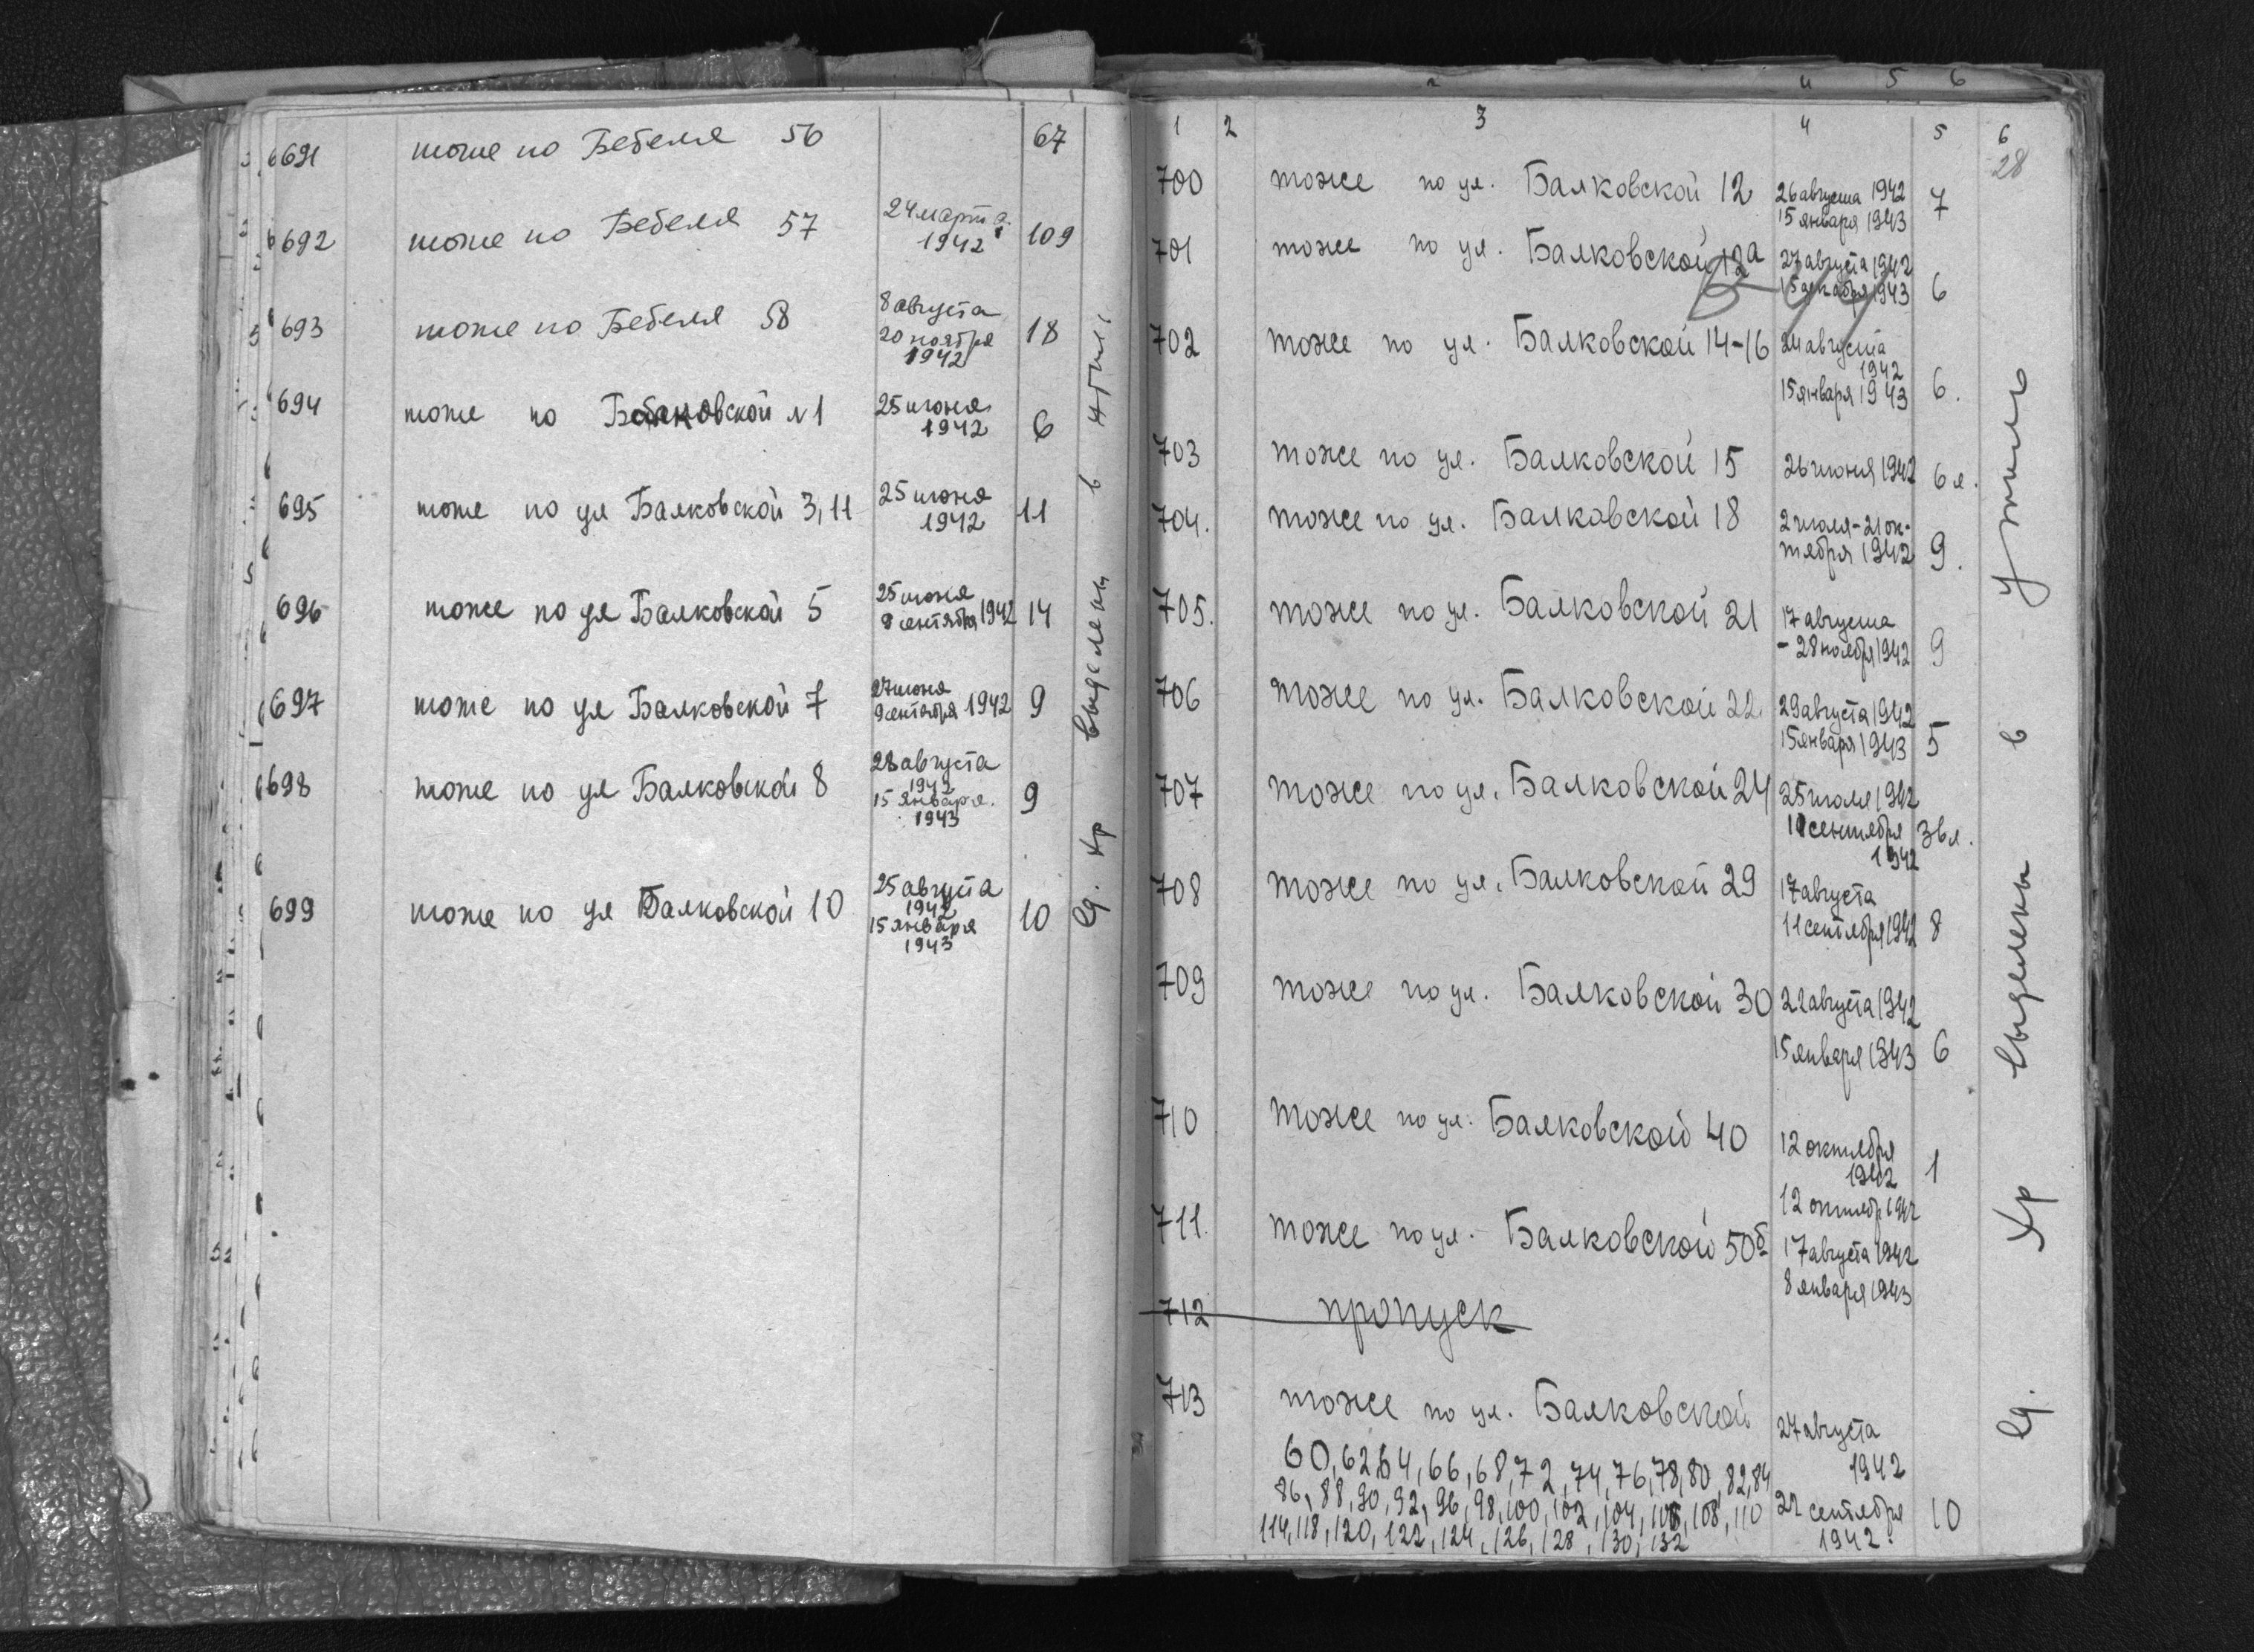 691 тоже по Бебеля 56 67
692 тоже по Бебеля 57 24 марта
1942 109
693 тоже по Бебеля 58 8 августа
20 ноября
1942 18
694 тоже по Балковской №1 25 июня
1942 6
695 тоже по ул Балковской 3,11 25 июня
1942 11
696 тоже по ул Балковской 5 25 июня
8 сентября 1942 14
697 тоже по ул Балковской 7 27 июня
9 сентября 1942 9
698 тоже по ул Балковской 8 28 августа
1942
15 января.
1943 9
699 тоже по ул Балковской 10 25 августа
1942
15 января
1943 10
ед. хр выделены в утиль
4 5 6
1 2 3 4 5 6
28
700 тоже по ул. Балковской 12 26 августа 1942
15 января 1943 7
701 тоже по ул. Балковской 12а 27 августа 1942
1943 6
702 тоже по ул. Балковской 14-16 24 августа
1942
15 января 1943 6.
703 тоже по ул. Балковской 15 26 июня 1942 6 л.
704. тоже по ул. Балковской 18 2 июля-21 ок-
тября 1942 9.
705. тоже по ул. Балковской 21 17 августа
- 28 ноября 1942 9
706 тоже по ул. Балковской 22. 29 августа 1942
15 января 1943 5
707 тоже по ул. Балковской 24 25 июля 1942
сентября
1942
708 тоже по ул. Балковской 29 17 августа
11 сентября 1942 8
709 тоже по ул. Балковской 30 22 августа 1942
15 января 1943 6
710 тоже по ул. Балковской 40 12 октября
1942 1
12 октября 1942
711. тоже по ул. Балковской 50б 17 августа 1942
8 января 1943
712 пропуск
713 тоже по ул. Балковской 27 августа
60,62,64,66,68,72,74,76,78,80,82,84 1942
86,88,90,92,96,98,100,102,104,106,108,110 22 сентября 10
114,118,120,122,124,126,128,130,132 1942.
ед. хр выделены в утиль